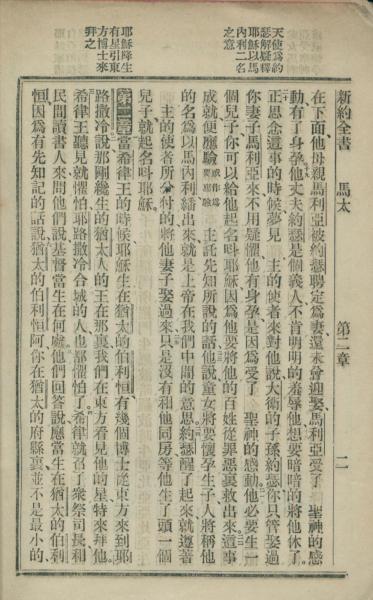 新約全書 馬太 第二章 二
天使爲約
瑟解疑釋
耶穌以馬
內利二名
之意
在下面他母親馬利亞被約瑟聘定爲妻還未曾迎娶馬利亞受了 聖神的感
動有了身孕他丈夫約瑟是個義人不肯明明的羞辱他想要暗暗的將他休了
正思念這事的時候夢見 主的使者來對他說大衛的子孫約瑟你只管娶過
你妻子馬利亞來不用疑懼他有身孕是因爲受了 聖神的感動他必要生一
個兒子你可以給他起名呌耶穌因爲他要將他的百姓從罪惡裏救出來這事
成就便應驗 主託先知所說的話他說童女將要懷孕生子人將稱他
的名爲以馬內利繙出來就是上帝在我們中間的意思約瑟醒了起來就遵著
主的使者所分付的將他妻子娶過來只是沒有和他同房等他生了頭一個
兒子就起名呌耶穌
耶穌降生
有星引東
方博士來
拜之
第二章當希律王的時候耶穌生在猶太的伯利恒有幾個博士從東方來到耶
路撒冷說那剛纔生的猶太人的王在那裏我們在東方看見他的星特來拜他
希律王聽見就懼怕耶路撒冷合城的人也都懼怕了希律就召了衆祭司長和
民間讀書人來問他們說基督當生在何處他們回答說應當生在猶太的伯利
恒因爲有先知記的話說猶太的伯利恒阿你在猶太的府縣裏並不是最小的